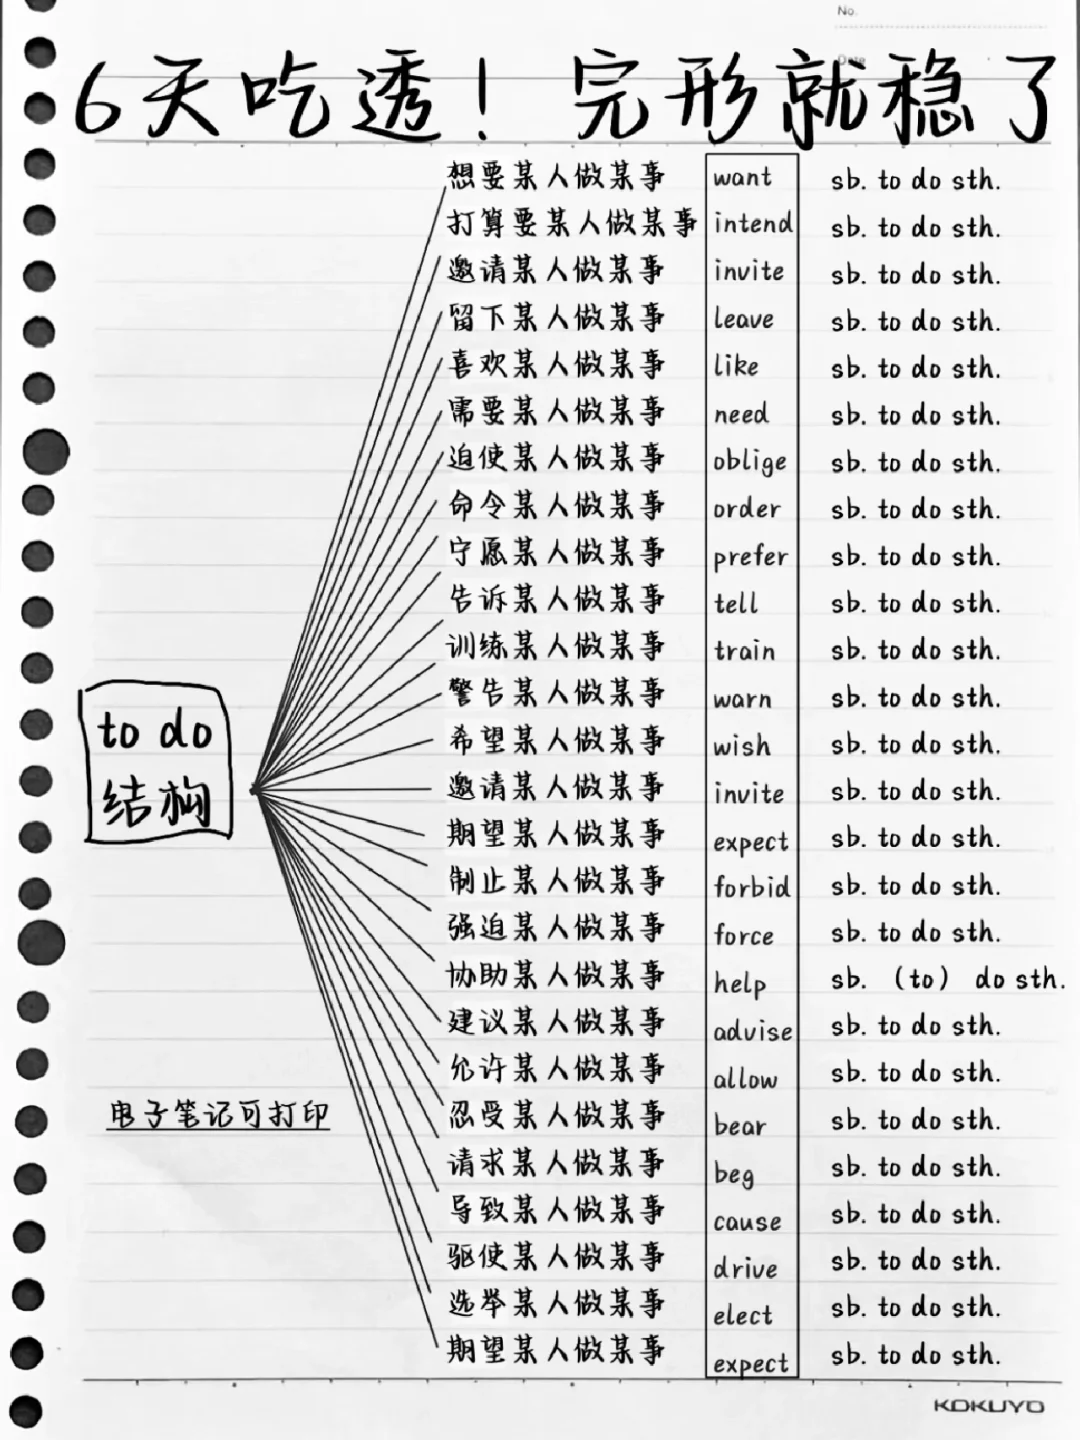 No.
Date
6天吃透！完形就稳了
想要某人做某事 want sb. to do sth.
打算要某人做某事 intend sb. to do sth.
邀请某人做某事 invite sb. to do sth.
留下某人做某事 leave sb. to do sth.
喜欢某人做某事 like sb. to do sth.
需要某人做某事 need sb. to do sth.
迫使某人做某事 oblige sb. to do sth.
命令某人做某事 order sb. to do sth.
宁愿某人做某事 prefer sb. to do sth.
告诉某人做某事 tell sb. to do sth.
训练某人做某事 train sb. to do sth.
警告某人做某事 warn sb. to do sth.
希望某人做某事 wish sb. to do sth.
邀请某人做某事 invite sb. to do sth.
期望某人做某事 expect sb. to do sth.
制止某人做某事 forbid sb. to do sth.
强迫某人做某事 force sb. to do sth.
协助某人做某事 help sb. （to） do sth.
建议某人做某事 advise sb. to do sth.
允许某人做某事 allow sb. to do sth.
忍受某人做某事 bear sb. to do sth.
请求某人做某事 beg sb. to do sth.
导致某人做某事 cause sb. to do sth.
驱使某人做某事 drive sb. to do sth.
选举某人做某事 elect sb. to do sth.
期望某人做某事 expect sb. to do sth.
to do
结构
电子笔记可打印
KOKUYO